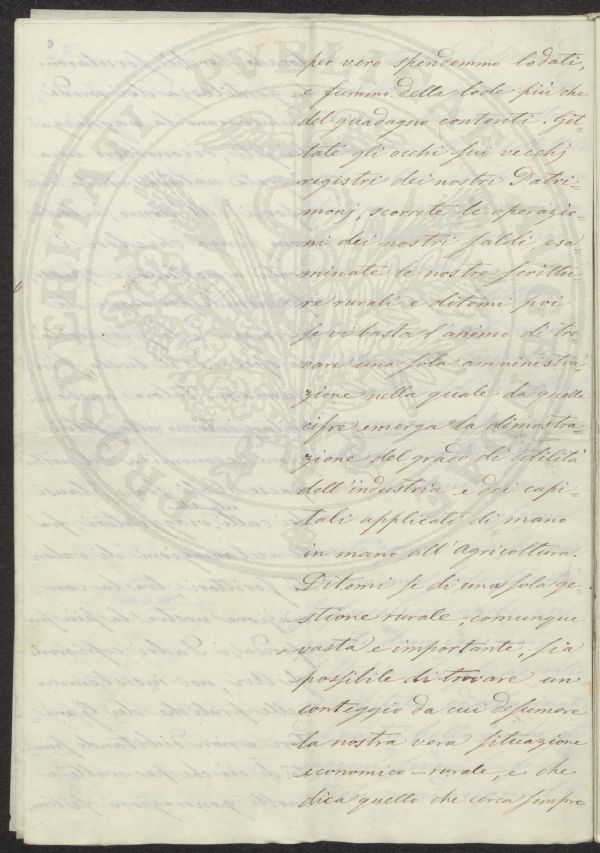 per vero spendemmo lodati,
e fummo della lode più che
del guadagno contenti. Get=
tate gli occhi sui vecchj
registri dei nostri Patri=
monj, scorrete le operazio=
ni dei nostri saldi, esa=
minate le nostre scrittu=
re rurali e ditemi poi
se vi basta l'animo di tro=
vare una sola amministra=
zione nella quale da quelle
cifre emerga la dimostra=
zione del grado di utilità
dell'industria e dei capi=
tali applicati di mano
in mano all'Agricoltura.
Ditemi se di una sola ge=
stione rurale, comunque
vasta e importante, sia
possibile di trovare un
conteggio da cui desumere
la nostra vera situazione
economico-rurale, e che
dica quello che cerca sempre
PROSPERITATI PVBLICAE